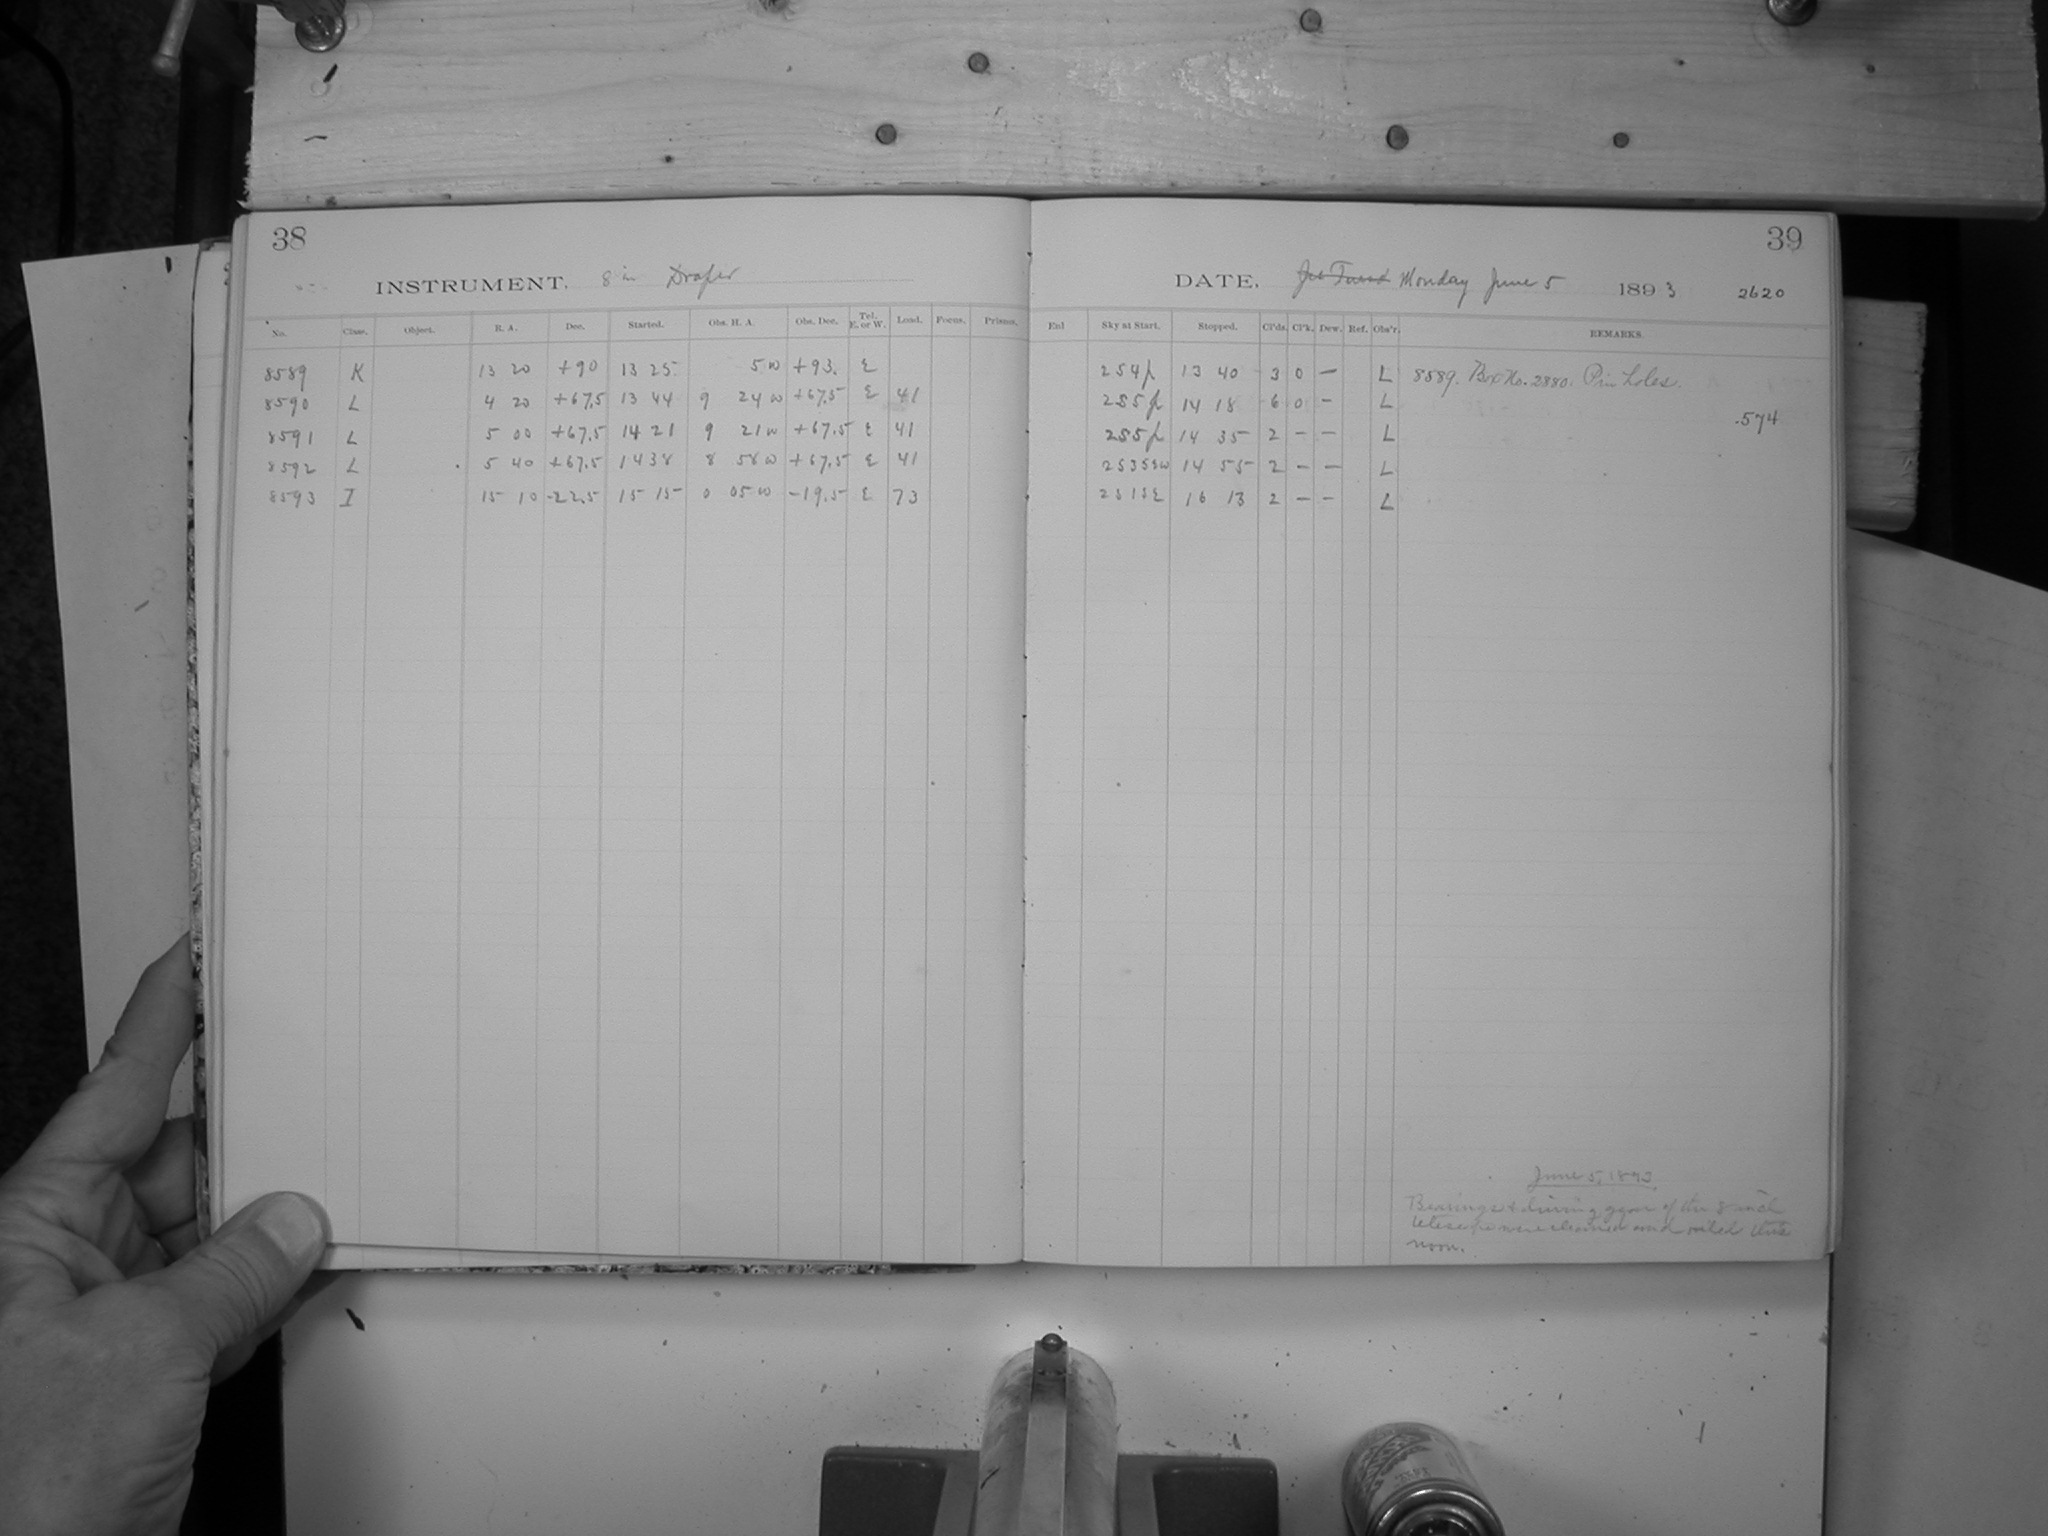 38
INSTRUMENT, 8 in Draper
No. Class. Object. R. A. Dec. Started. Obs. H. A. Obs. Dec. Tel. E. or W. Load. Focus. Prisms.
8589 K 13 20 +90 13 25 5 W +93. E
8590 L 4 20 +67.5 13 44 9 24 W +67.5 E 41
8591 L 5 00 +67.5 14 21 9 21 W +67.5 E 41
8592 L 5 40 +67.5 14 38 8 58 W +67.5 E 41
8593 I 15 10 -22.5 15 15 0 05 W -19.5 E 73
39
DATE, Monday June 5 1893 2620
Enl Sky at Start. Stopped. Cl'ds. Cl'k. Dew. Ref. Obs'r. REMARKS.
13 40 3 0 — L 8589. Box No. 2880. Pin holes.
14 18 6 0 - L
.574
14 35 2 - - L
14 55 2 - - L
16 13 2 - - L
June 5, 1893
Bearings & driving gear of the 8 inch
telescope were cleaned and oiled this
noon.